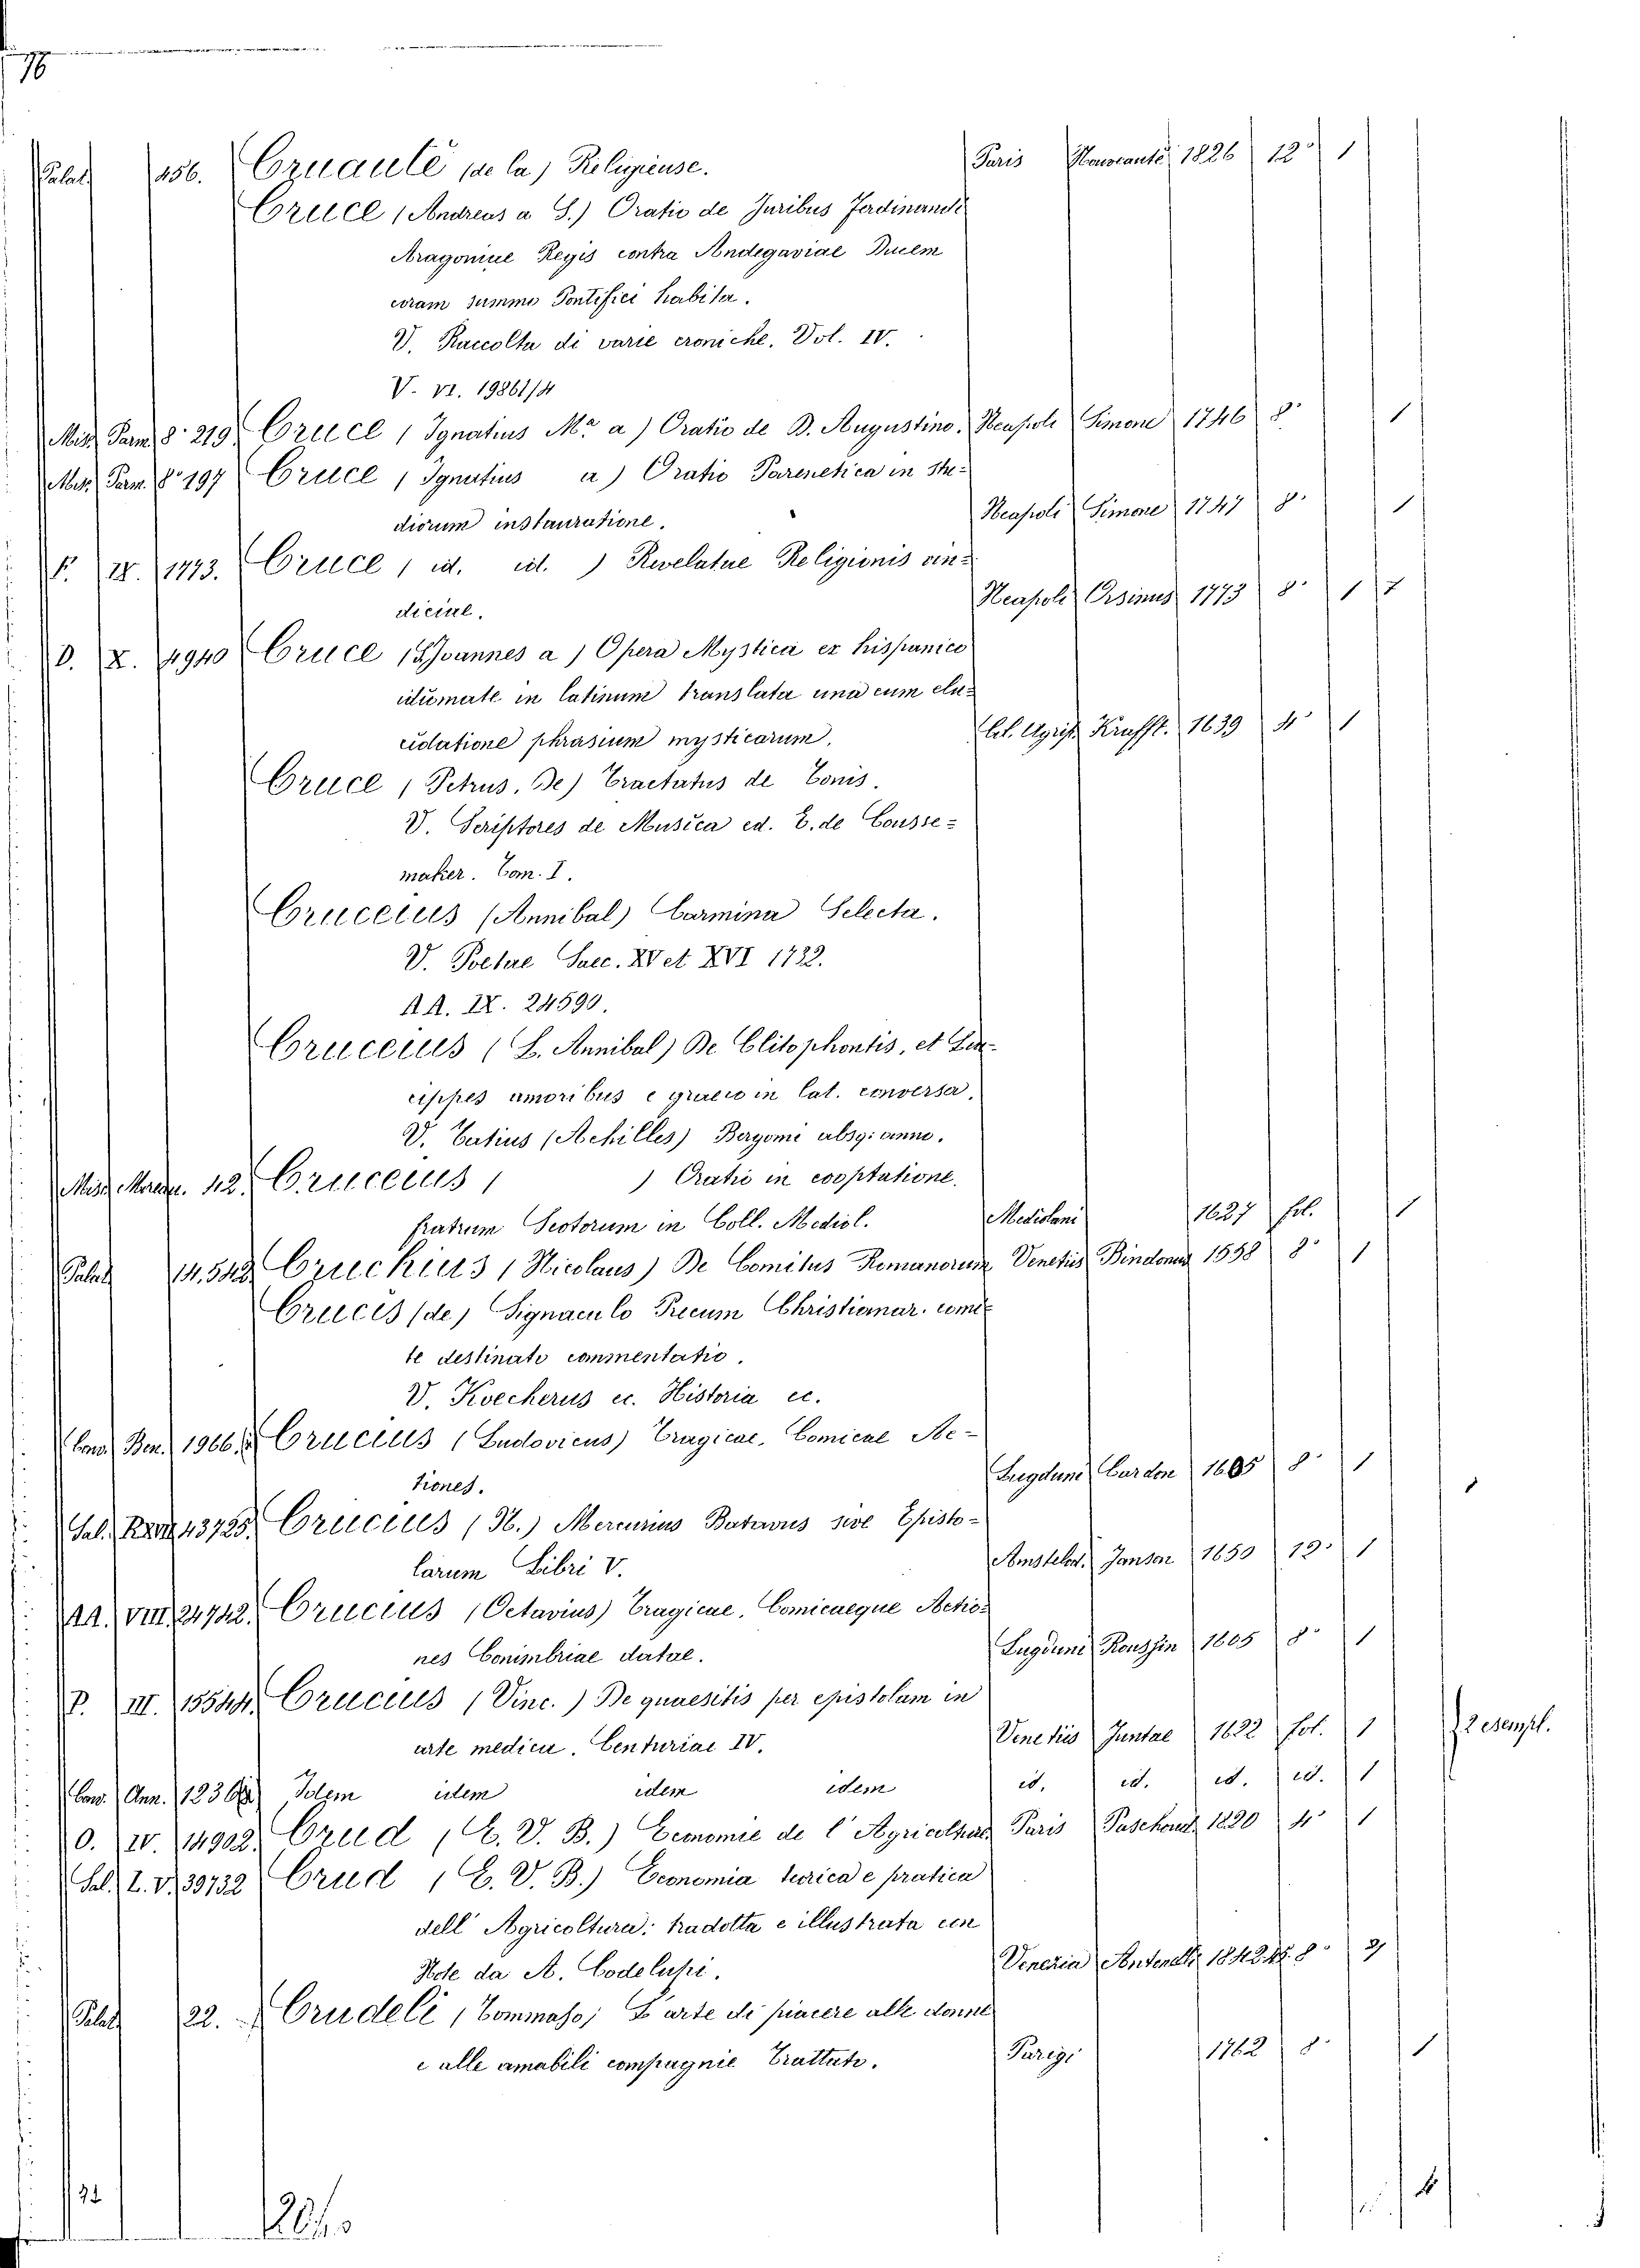 76
Palat. 456. Cruauté (de la) Religieuse. Paris 1826 12° 1
Cruce (Andreas a S.) Oratio de Juribus Ferdinandi
Aragoniae Regis contra Andegaviae Ducem
coram summo Pontifici habita.
V. Raccolta di varie croniche. Vol. IV.
V. VI. 19861/4
Misc. Parm. 8° 219. Cruce (Ignatius M.a a) Oratio de D. Augustino. Neapoli Simone 1746 8° 1
Misc. Parm. 8° 197 Cruce (Ignatius a) Oratio Parenetica in stu-
diorum instauratione. Neapoli Simone 1747 8° 1
F. IX. 1773. Cruce (id. id.) Revelatae Religionis vin-
diciae. Neapoli Orsinus 1773 8° 1 7
D. X. 4940 Cruce (Joannes a) Opera Mystica ex hispanico
idiomate in latinum translata una cum elu-
cidatione phrasium mysticarum. Col. Agrip. Krafft. 1639 4° 1
Cruce (Petrus, De) Tractatus de Tonis.
V. Scriptores de Musica ed. E. de Cousse-
maker. Tom. I.
Cruceius (Annibal) Carmina Selecta.
V. Poetae Saec. XV et XVI 1732.
AA. IX. 24590.
Cruceius (L. Annibal) De Clitophontis, et Leu-
cippes amoribus e graeco in lat. conversa.
V. Tatius (Achilles) Bergomi absq: anno.
Misc. 42. Cruceius ( ) Oratio in cooptatione.
fratrum Scotorum in Coll. Mediol. Mediolani 1627 fol. 1
Palat. 14.543 Cruchius (Nicolaus) De Comitus Romanorum Venetiis Bindonus 1558 8° 1
Crucis (de) Signaculo Precum Christianar. comi-
te destinato commentatio.
V. Koecherus ec. Historia ec.
Ben. 1966. Crucius (Ludovicus) Tragicae, Comicae Ac-
tiones. Lugduni Cardon 1605 8° 1
Sal. 43725. Crucius (N.) Mercurius Batavus sive Episto-
larum Libri V. Amstelod. Janson 1650 12° 1
AA. VIII. 24742. Crucius (Octavius) Tragicae, Comicaeque Actio-
nes Conimbriae datae. Lugduni 1605 8° 1
P. III. 15544. Crucius (Vinc.) De quaesitis per epistolam in
arte medica. Centuriae IV. Venetiis Juntae 1622 fol. 1 2 esempl.
Ann. 1236 Idem idem idem idem id. id. id. id. 1
O. IV. 14902. Crud (E. V. B.) Economie de l'Agriculture Paris Paschoud 1820 4° 1
Sal. L. V. 39732 Crud (E. V. B.) Economia teorica e pratica
dell' Agricoltura: tradotta e illustrata con
Note da A. Codelupi. Venezia Antonelli 1842 8° 2
Palat. 22. Crudeli (Tommaso) L'arte di piacere alle donne
e alle amabili compagnie Trattato. Parigi 1762 8° 1